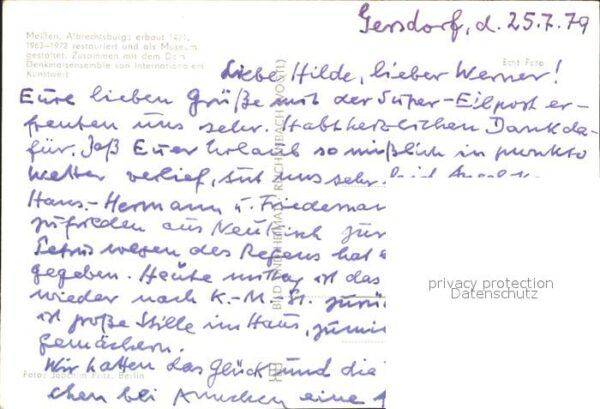 Gersdorf, d. 25.7.79
Meißen, Albrechtsburg; erbaut 1471,
1963–1972 restauriert und als Museum
gestaltet. Zusammen mit dem Dom
Denkmalsensemble von internationalem
Kunstwert
Echt Foto
Liebe Hilde, lieber Werner!
Eure lieben Grüße mit der Super-Eilpost er-
freuten uns sehr. Habt herzlichen Dank da-
für. Daß Euer Urlaub so mißlich in punkto
Wetter verlief, tut uns sehr
Hans-Hermann u.
zufrieden aus
Petrus wegen des Regens hat
gegeben. Heute mittag ist das
wieder nach K.-M.-St.
ist große Stille im Haus,
Gemächern.
Wir hatten das Glück und die
chen bei eine
Foto: Joachim Fritz, Berlin
BILD UND HEIMAT REICHENBACH (VOGTL)
privacy protection
Datenschutz